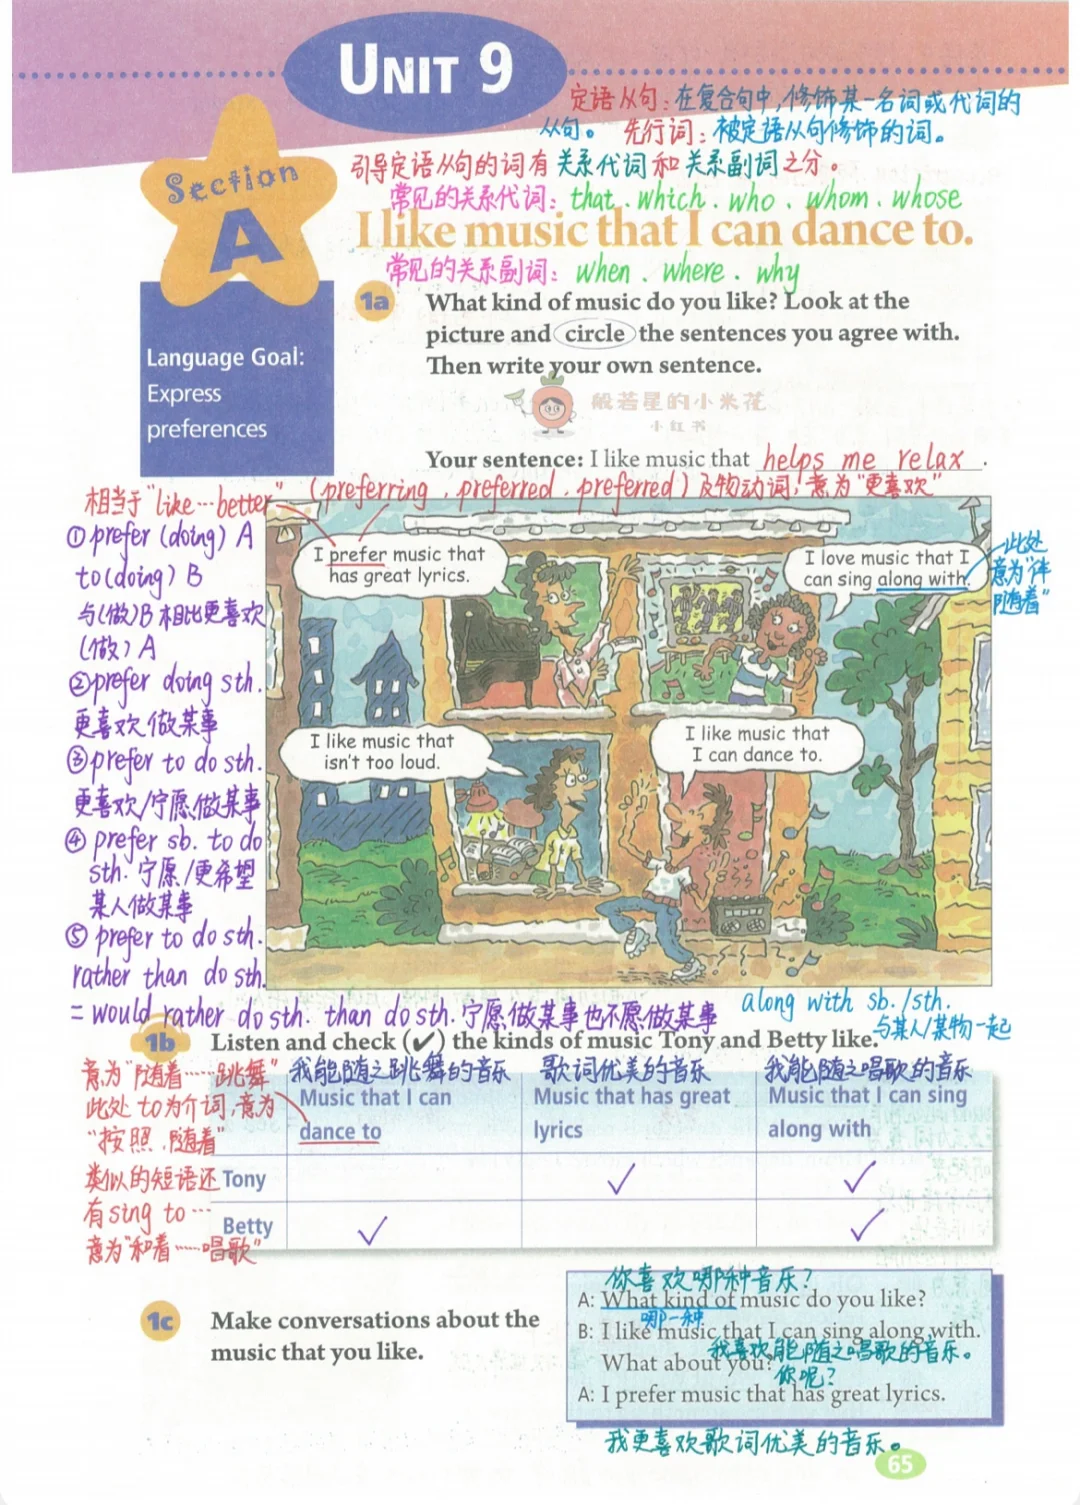 UNIT 9
定语从句：在复合句中，修饰某一名词或代词的
从句。 先行词：被定语从句修饰的词。
引导定语从句的词有关系代词和关系副词之分。
常见的关系代词：that . which . who . whom . whose
Section
A
I like music that I can dance to.
常见的关系副词：when . where . why
Language Goal:
Express
preferences
1a What kind of music do you like? Look at the
picture and circle the sentences you agree with.
Then write your own sentence.
般若星的小米花
小红书
Your sentence: I like music that helps me relax.
相当于“like…better” (preferring . preferred . preferred) 及物动词，意为“更喜欢”
① prefer (doing) A
to (doing) B
与(做)B相比更喜欢
(做) A
② prefer doing sth.
更喜欢做某事
③ prefer to do sth.
更喜欢/宁愿做某事
④ prefer sb. to do
sth. 宁愿/更希望
某人做某事
⑤ prefer to do sth.
rather than do sth.
= would rather do sth. than do sth. 宁愿做某事也不愿做某事
I prefer music that
has great lyrics.
I love music that I
can sing along with.
此处
意为“伴
随着”
I like music that
isn't too loud.
I like music that
I can dance to.
along with sb./sth.
与某人/某物一起
1b Listen and check (✔) the kinds of music Tony and Betty like.
意为“随着……跳舞”
此处to为介词，意为
“按照，随着”
类似的短语还
有sing to …
意为“和着……唱歌”
我能随之跳舞的音乐 歌词优美的音乐 我能随之唱歌的音乐
Music that I can Music that has great Music that I can sing
dance to lyrics along with
Tony ✓ ✓
Betty ✓ ✓
1c Make conversations about the
music that you like.
你喜欢哪种音乐？
A: What kind of music do you like?
哪一种
B: I like music that I can sing along with.
我喜欢能随之唱歌的音乐。
What about you?
你呢？
A: I prefer music that has great lyrics.
我更喜欢歌词优美的音乐。
65